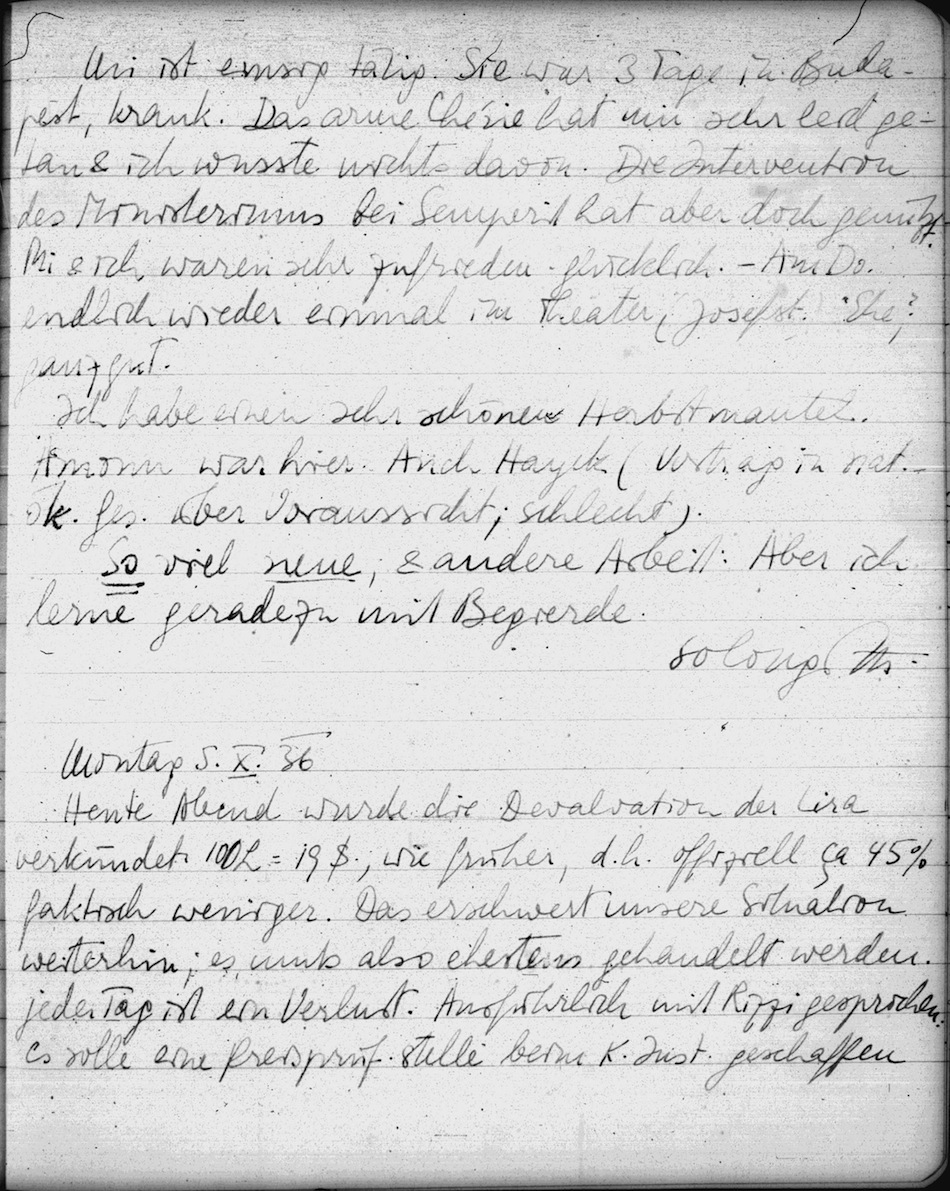 Mi ist emsig tätig. Sie war 3 Tage in Buda-
pest, krank. Das arme Chérie hat mir sehr leid ge-
tan & ich wusste nichts davon. Die Intervention
des Ministeriums bei Semperit hat aber doch genützt.
Mi & ich waren sehr zufrieden - glücklich. – Am Do.
endlich wieder einmal im Theater, (Josefst. "Ehe",
ganz gut.
Ich habe einen sehr schönen Herbstmantel.
Amonn war hier. Auch Hayek (Vortrag in nat.-
ök. Ges. über Voraussicht; schlecht).
So viel neue, & andere Arbeit: Aber ich
lerne geradezu mit Begierde.
so long
Montag 5. X. 36
Heute Abend wurde die Devalvation der Lira
verkündet. 100 L = 19 $., wie früher, d.h. offiziell ca 45%
faktisch weniger. Das erschwert unsere Situation
weiterhin; es muß also ehestens gehandelt werden.
jeder Tag ist ein Verlust. Ausführlich mit Rizzi gesprochen.
es solle eine Preisprüf. stelle beim K. Inst. geschaffen